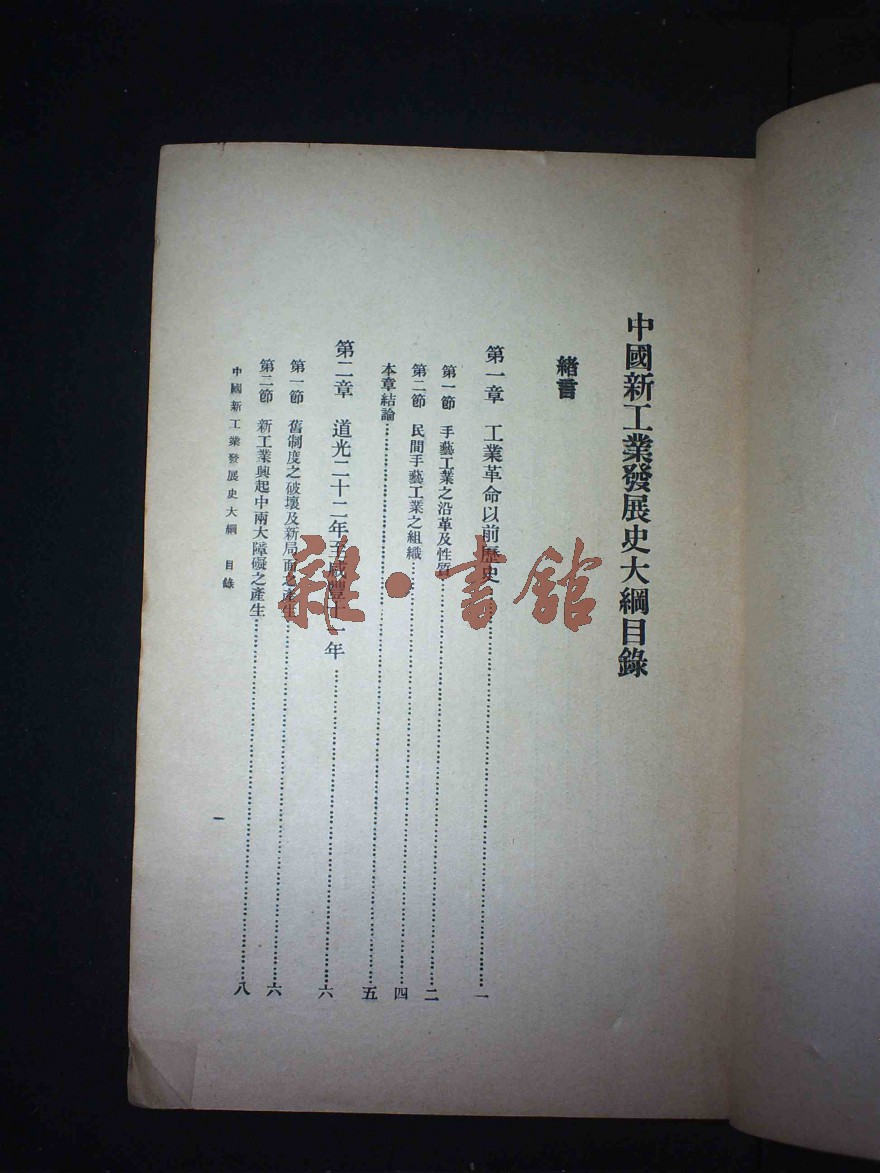 中國新工業發展史大綱目錄
緒言
第一章　工業革命以前歷史……一
第一節　手藝工業之沿革及性質……二
第二節　民間手藝工業之組織……四
本章結論……五
第二章　道光二十二年至咸豐十一年……六
第一節　舊制度之破壞及新局面之產生……六
第二節　新工業興起中兩大障礙之產生……八
中國新工業發展史大綱　目錄
一
雜·書館